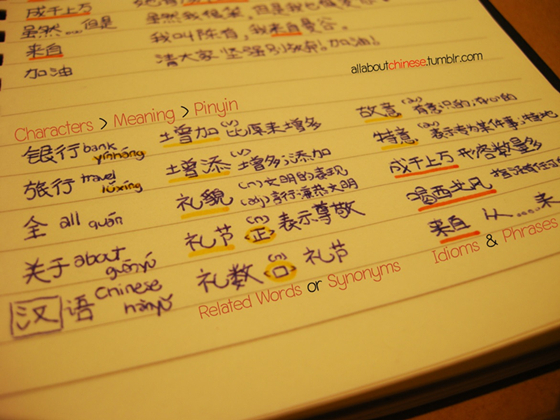 成千上万
虽然....但是 虽然我很笨，但是我也
来自 我叫陈育，我来自曼谷。
加油 清大家坚强别放死！加油！
allaboutchinese.tumblr.com
Characters > Meaning > Pinyin
银行 bank yínháng
旅行 travel lüxíng
全 all quán
关于 about guānyú
汉语 Chinese hànyǔ
增加 (v) 比原来增多
增添 (v) 增多；添加
礼貌 (n) 文明的表现
(adj) 言行谦恭文明
礼节 (n) 正 表示尊敬
礼数 (n) 口 礼节
Related Words or Synonyms
故意 有意识的，存心的
特意 表示专为某件事；特地
成千上万 形容数量多
喝西北风
来自 从......来
Idioms & Phrases